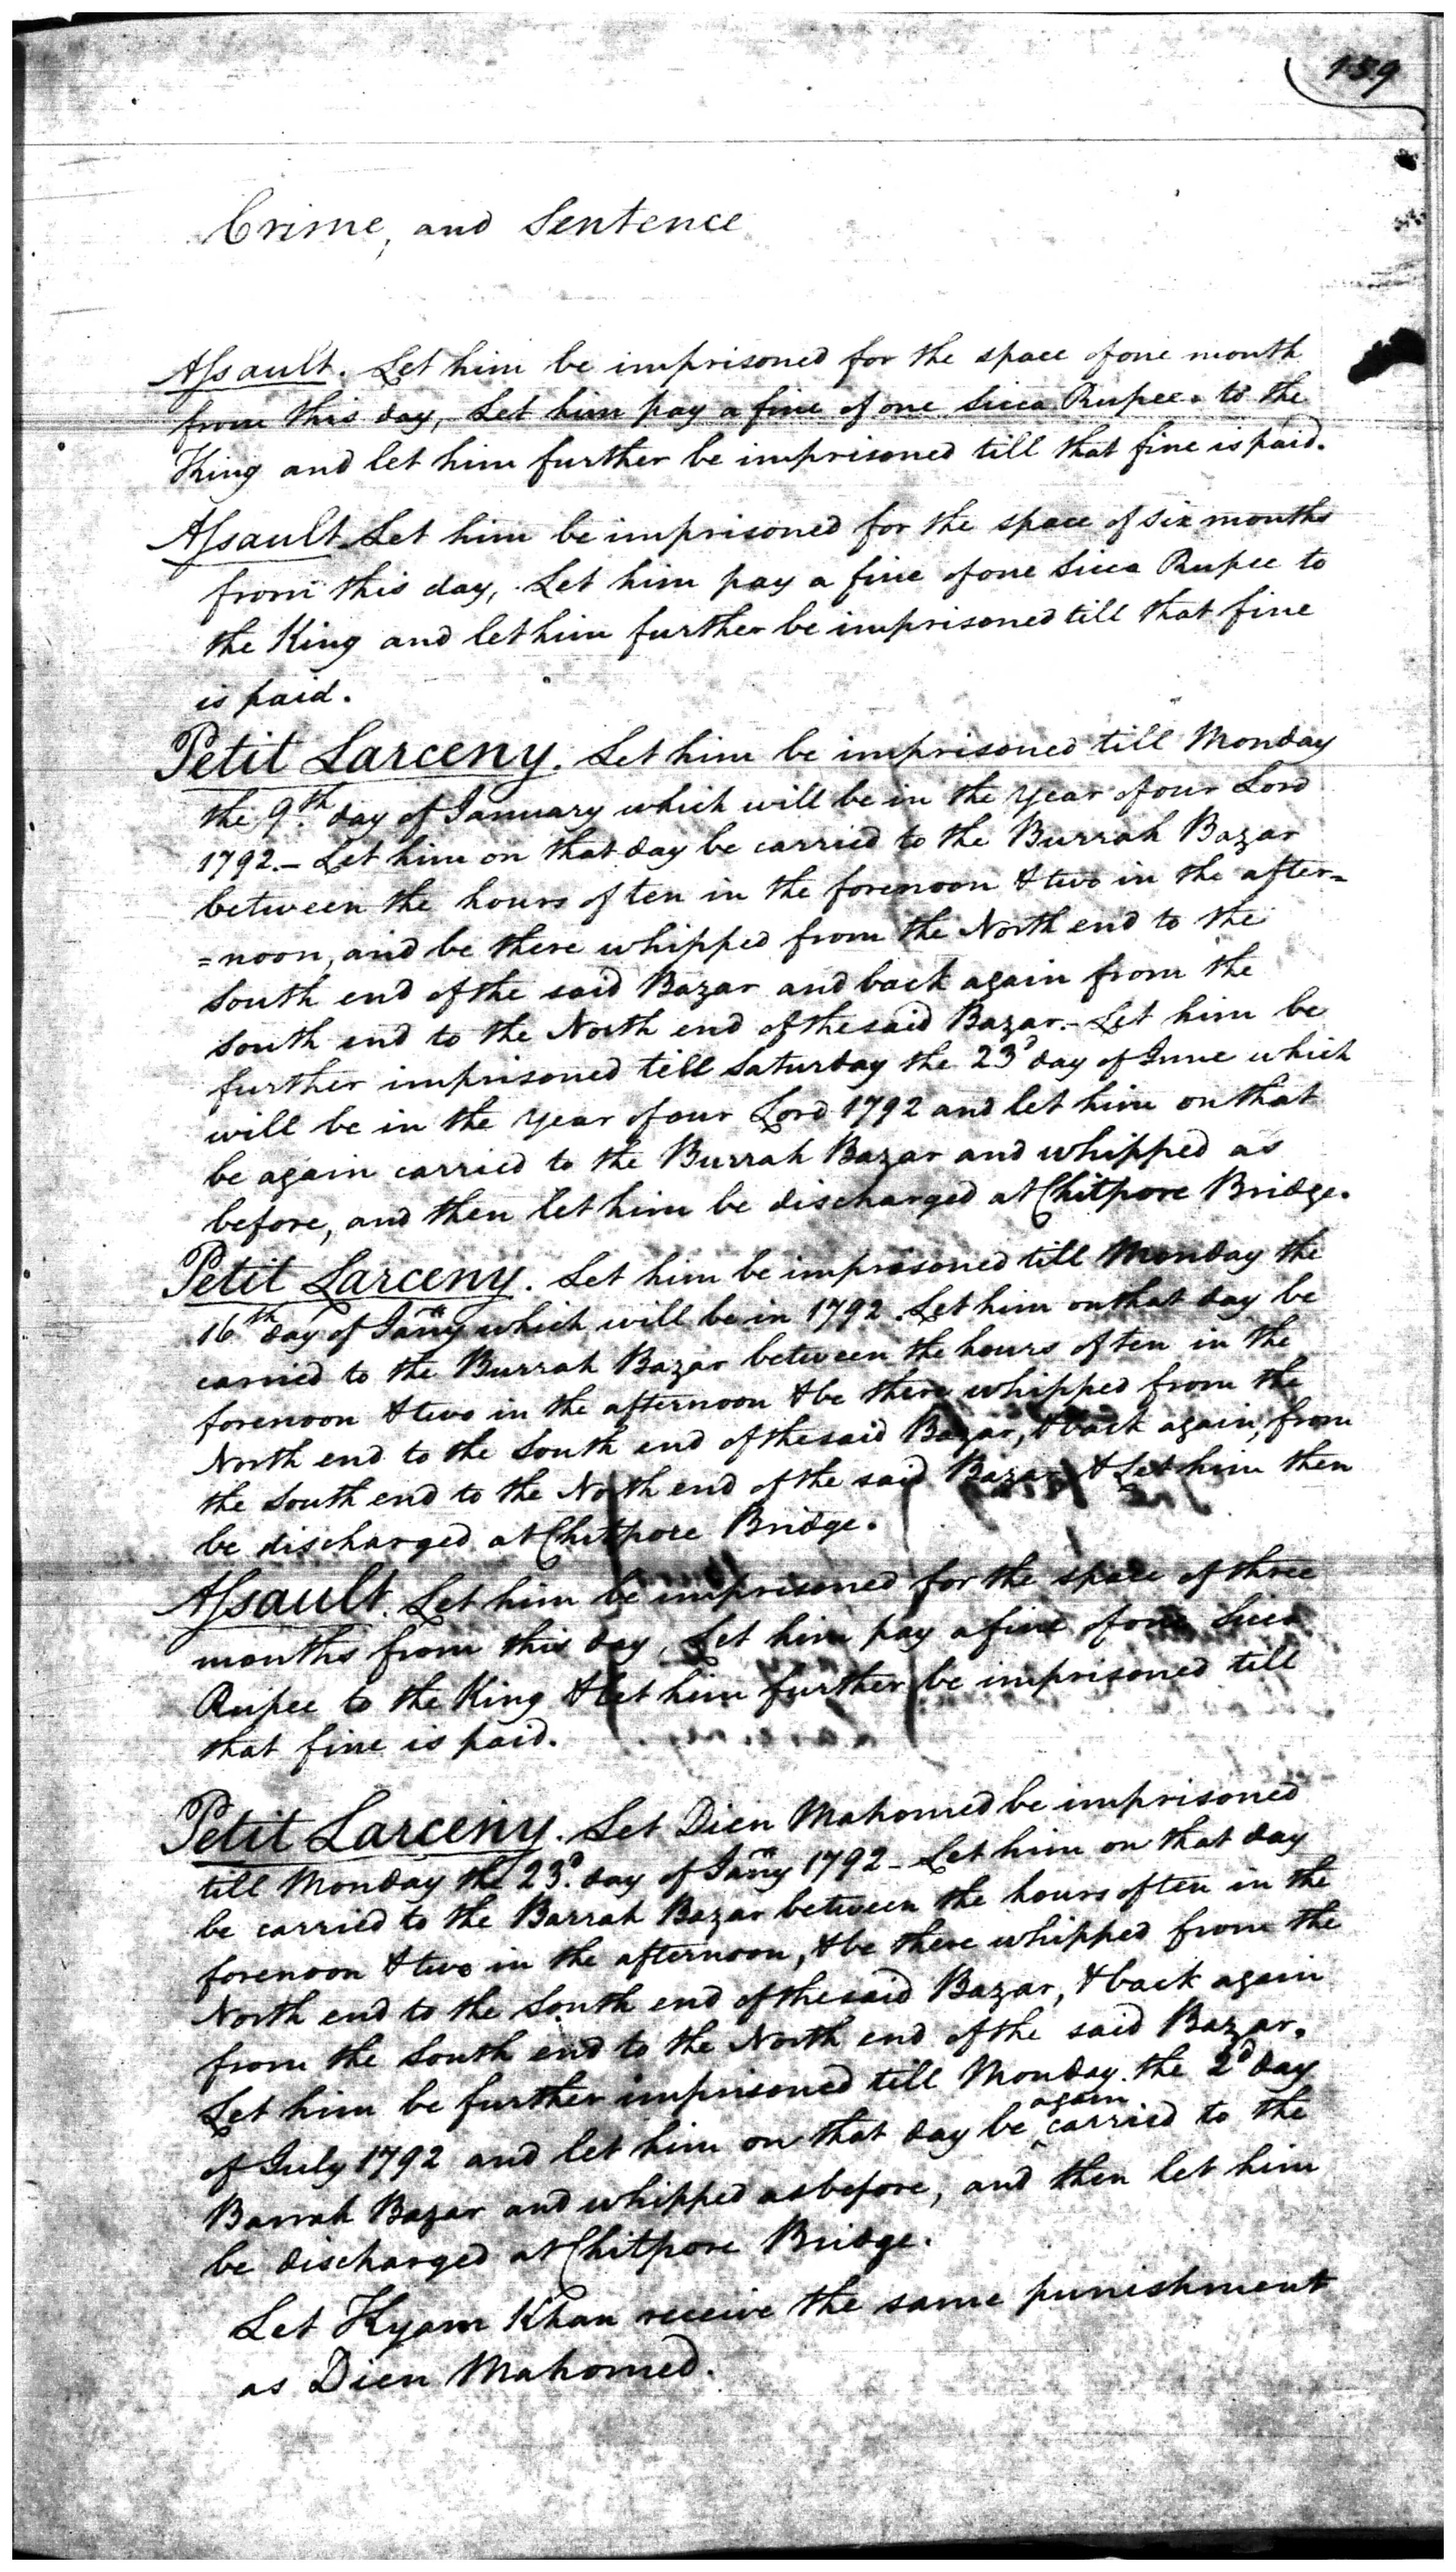 159
Crime, and Sentence
Assault. Let him be imprisoned for the space of one month
from this day, Let him pay a fine of one Sicca Rupee to the
King and let him further be imprisoned till that fine is paid.
Assault Let him be imprisoned for the space of six months
from this day, Let him pay a fine of one Sicca Rupee to
the King and let him further be imprisoned till that fine
is paid.
Petit Larceny. Let him be imprisoned till Monday
the 9th day of January which will be in the Year of our Lord
1792.- Let him on that day be carried to the Burrah Bazar
between the hours of ten in the forenoon & two in the after=
=noon, and be there whipped from the North end to the
South end of the said Bazar and back again from the
South end to the North end of the said Bazar.- Let him be
further imprisoned till Saturday the 23d day of June which
will be in the Year of our Lord 1792 and let him on that
be again carried to the Burrah Bazar and whipped as
before, and then let him be discharged at Chitpore Bridge.
Petit Larceny. Let him be imprisoned till Monday the
16th day of Janry which will be in 1792. Let him on that day be
carried to the Burrah Bazar between the hours of ten in the
forenoon & two in the afternoon & be there whipped from the
North end to the South end of the said Bazar, & back again, from
the South end to the North end of the said Bazar & Let him then
be discharged at Chitpore Bridge.
Assault. Let him be imprisoned for the space of three
months from this day, Let him pay a fine of one Sicca
Rupee to the King & let him further be imprisoned till
that fine is paid.
Petit Larceny. Let Dien Mahomed be imprisoned
till Monday the 23d. day of Janry 1792 - Let him on that day
be carried to the Barrah Bazar between the hours of ten in the
forenoon & two in the afternoon, & be there whipped from the
North end to the South end of the said Bazar, & back again
from the South end to the North end of the said Bazar.
Let him be further imprisoned till Monday the 2d day
of July 1792 and let him on that day be again carried to the
Barrah Bazar and whipped as before, and then let him
be discharged at Chitpore Bridge.
Let Kyam Khan receive the same punishment
as Dien Mahomed.